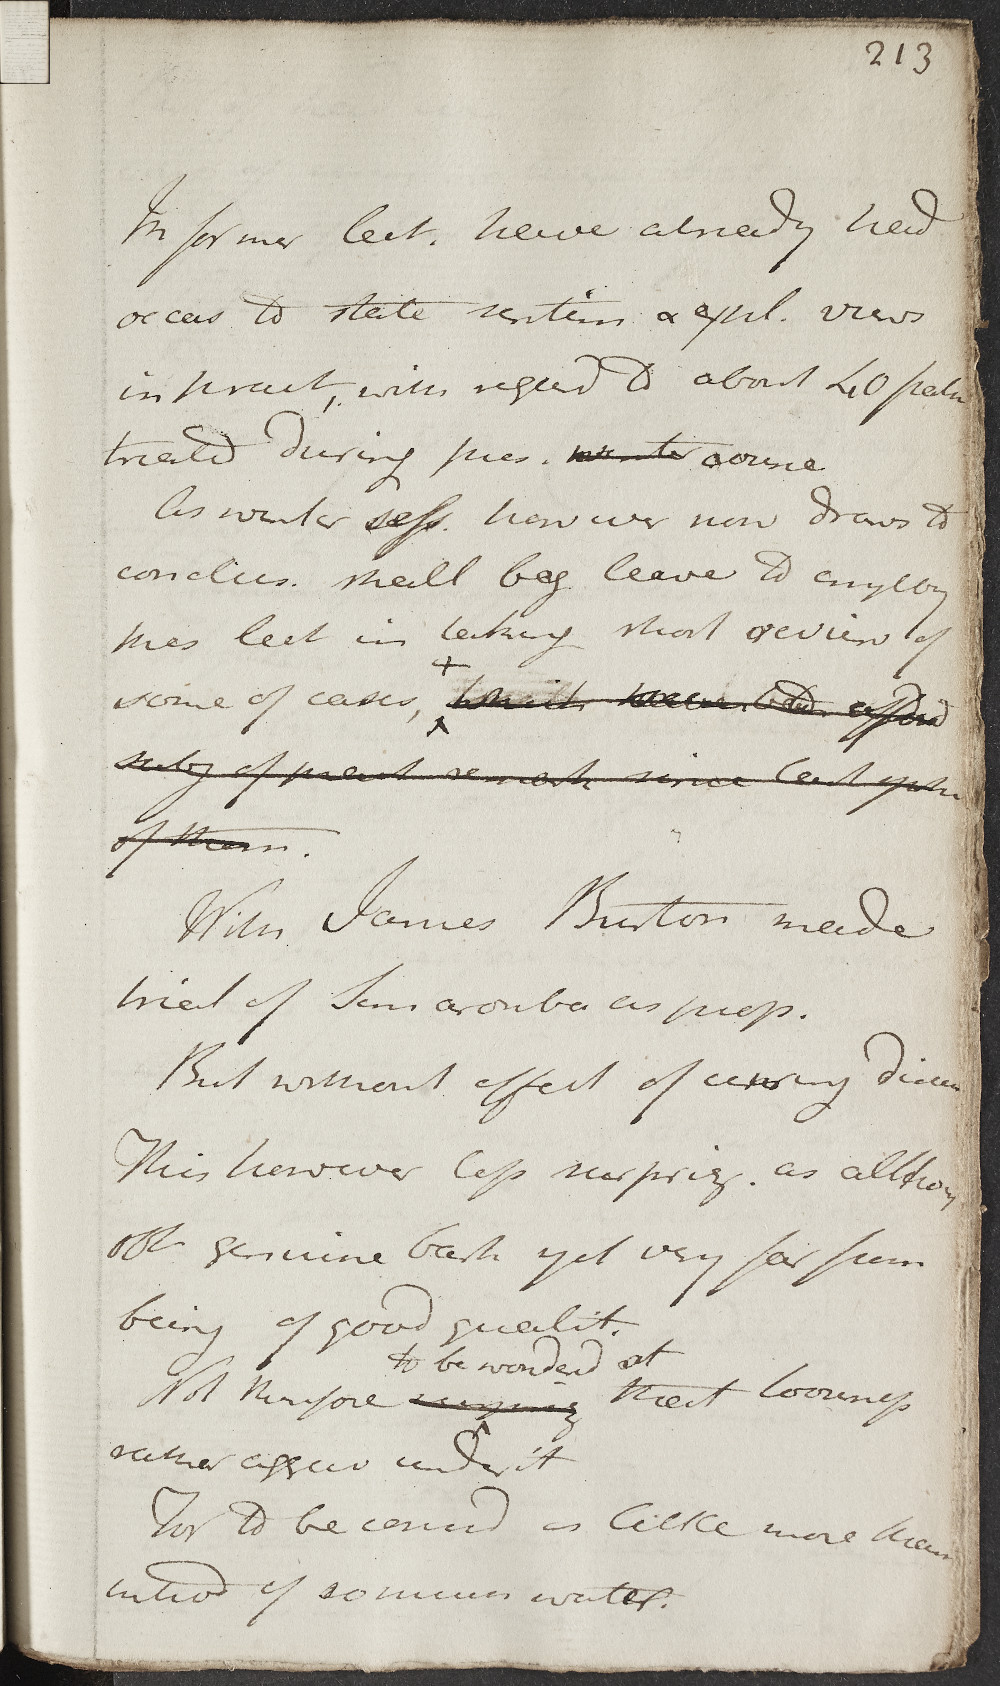 213
In former lect. have already had
occas to state sentim & expl. views
in pract, with regard to about 40 patn
treated during pres. winter course
As winter sess. however now draws to
conclus. shall beg leave to employ
this lect in taking short review of
some of cases, + which have not afford
subj of pract remark since last
of them.
With James Burton made
trial of Simarouba as prop.
But without effect of curing
This however less surpriz. as althoug
obt genuine bark yet very far from
being of good qualit.
to be wonderd at
Not therefore surprizing that looseness
rather aggrav under it
For to be consid as little more than
introd of so much water.